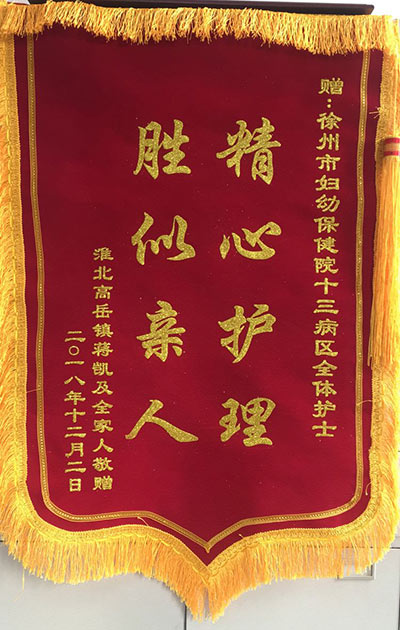 赠：徐州市妇幼保健院十三病区全体护士
精心护理
胜似亲人
淮北高岳镇蒋凯及全家人敬赠
二〇一八年十二月二日